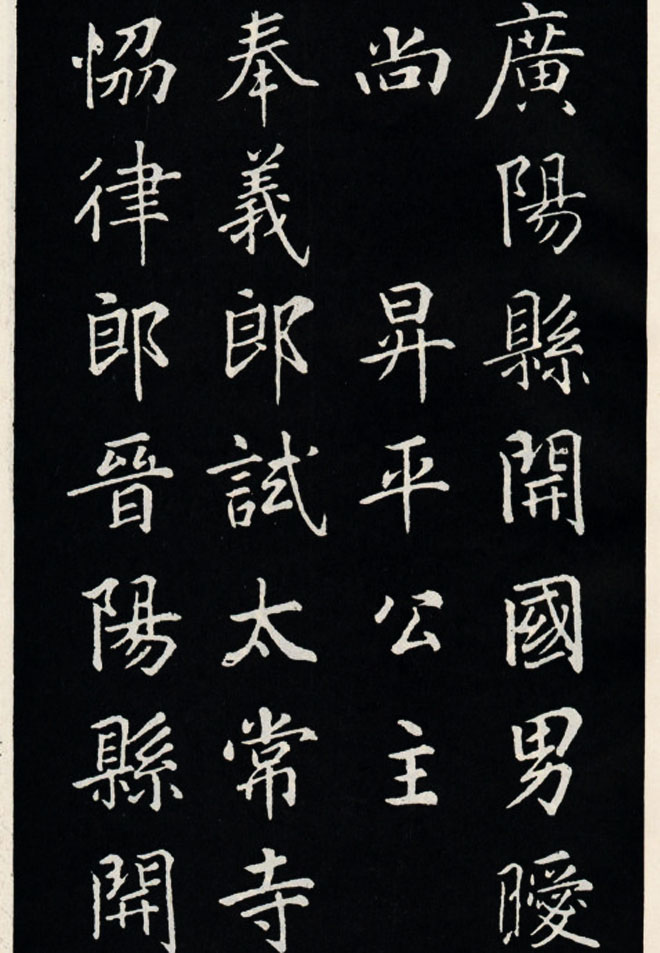 廣陽縣開國男曖
尚昇平公主
奉義郎試太常寺
恊律郎晉陽縣開